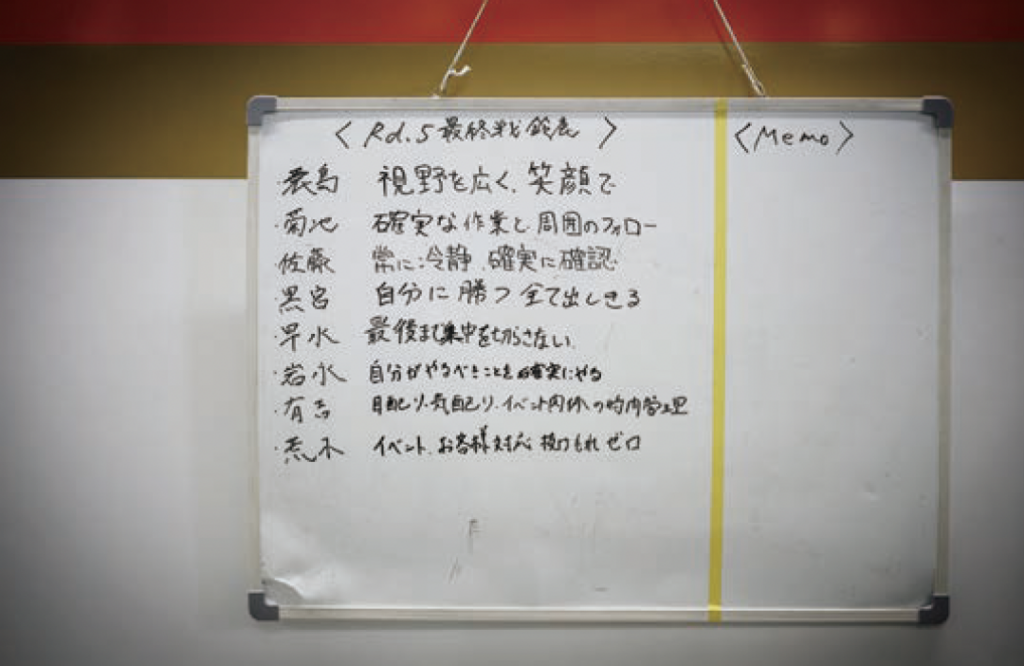 〈 Rd.5 最終戦 鈴鹿 〉
〈Memo〉
・長島 視野を広く、笑顔で
・菊池 確実な作業と周囲のフォロー
・佐藤 常に冷静、確実に確認
・黒宮 自分に勝つ 全て出しきる
・早水 最後まで集中を切らさない
・岩水 自分がやるべきことを確実にやる
・有吉 目配り、気配り、イベント
・荒木 イベント、お客様対応 抜けもれゼロ